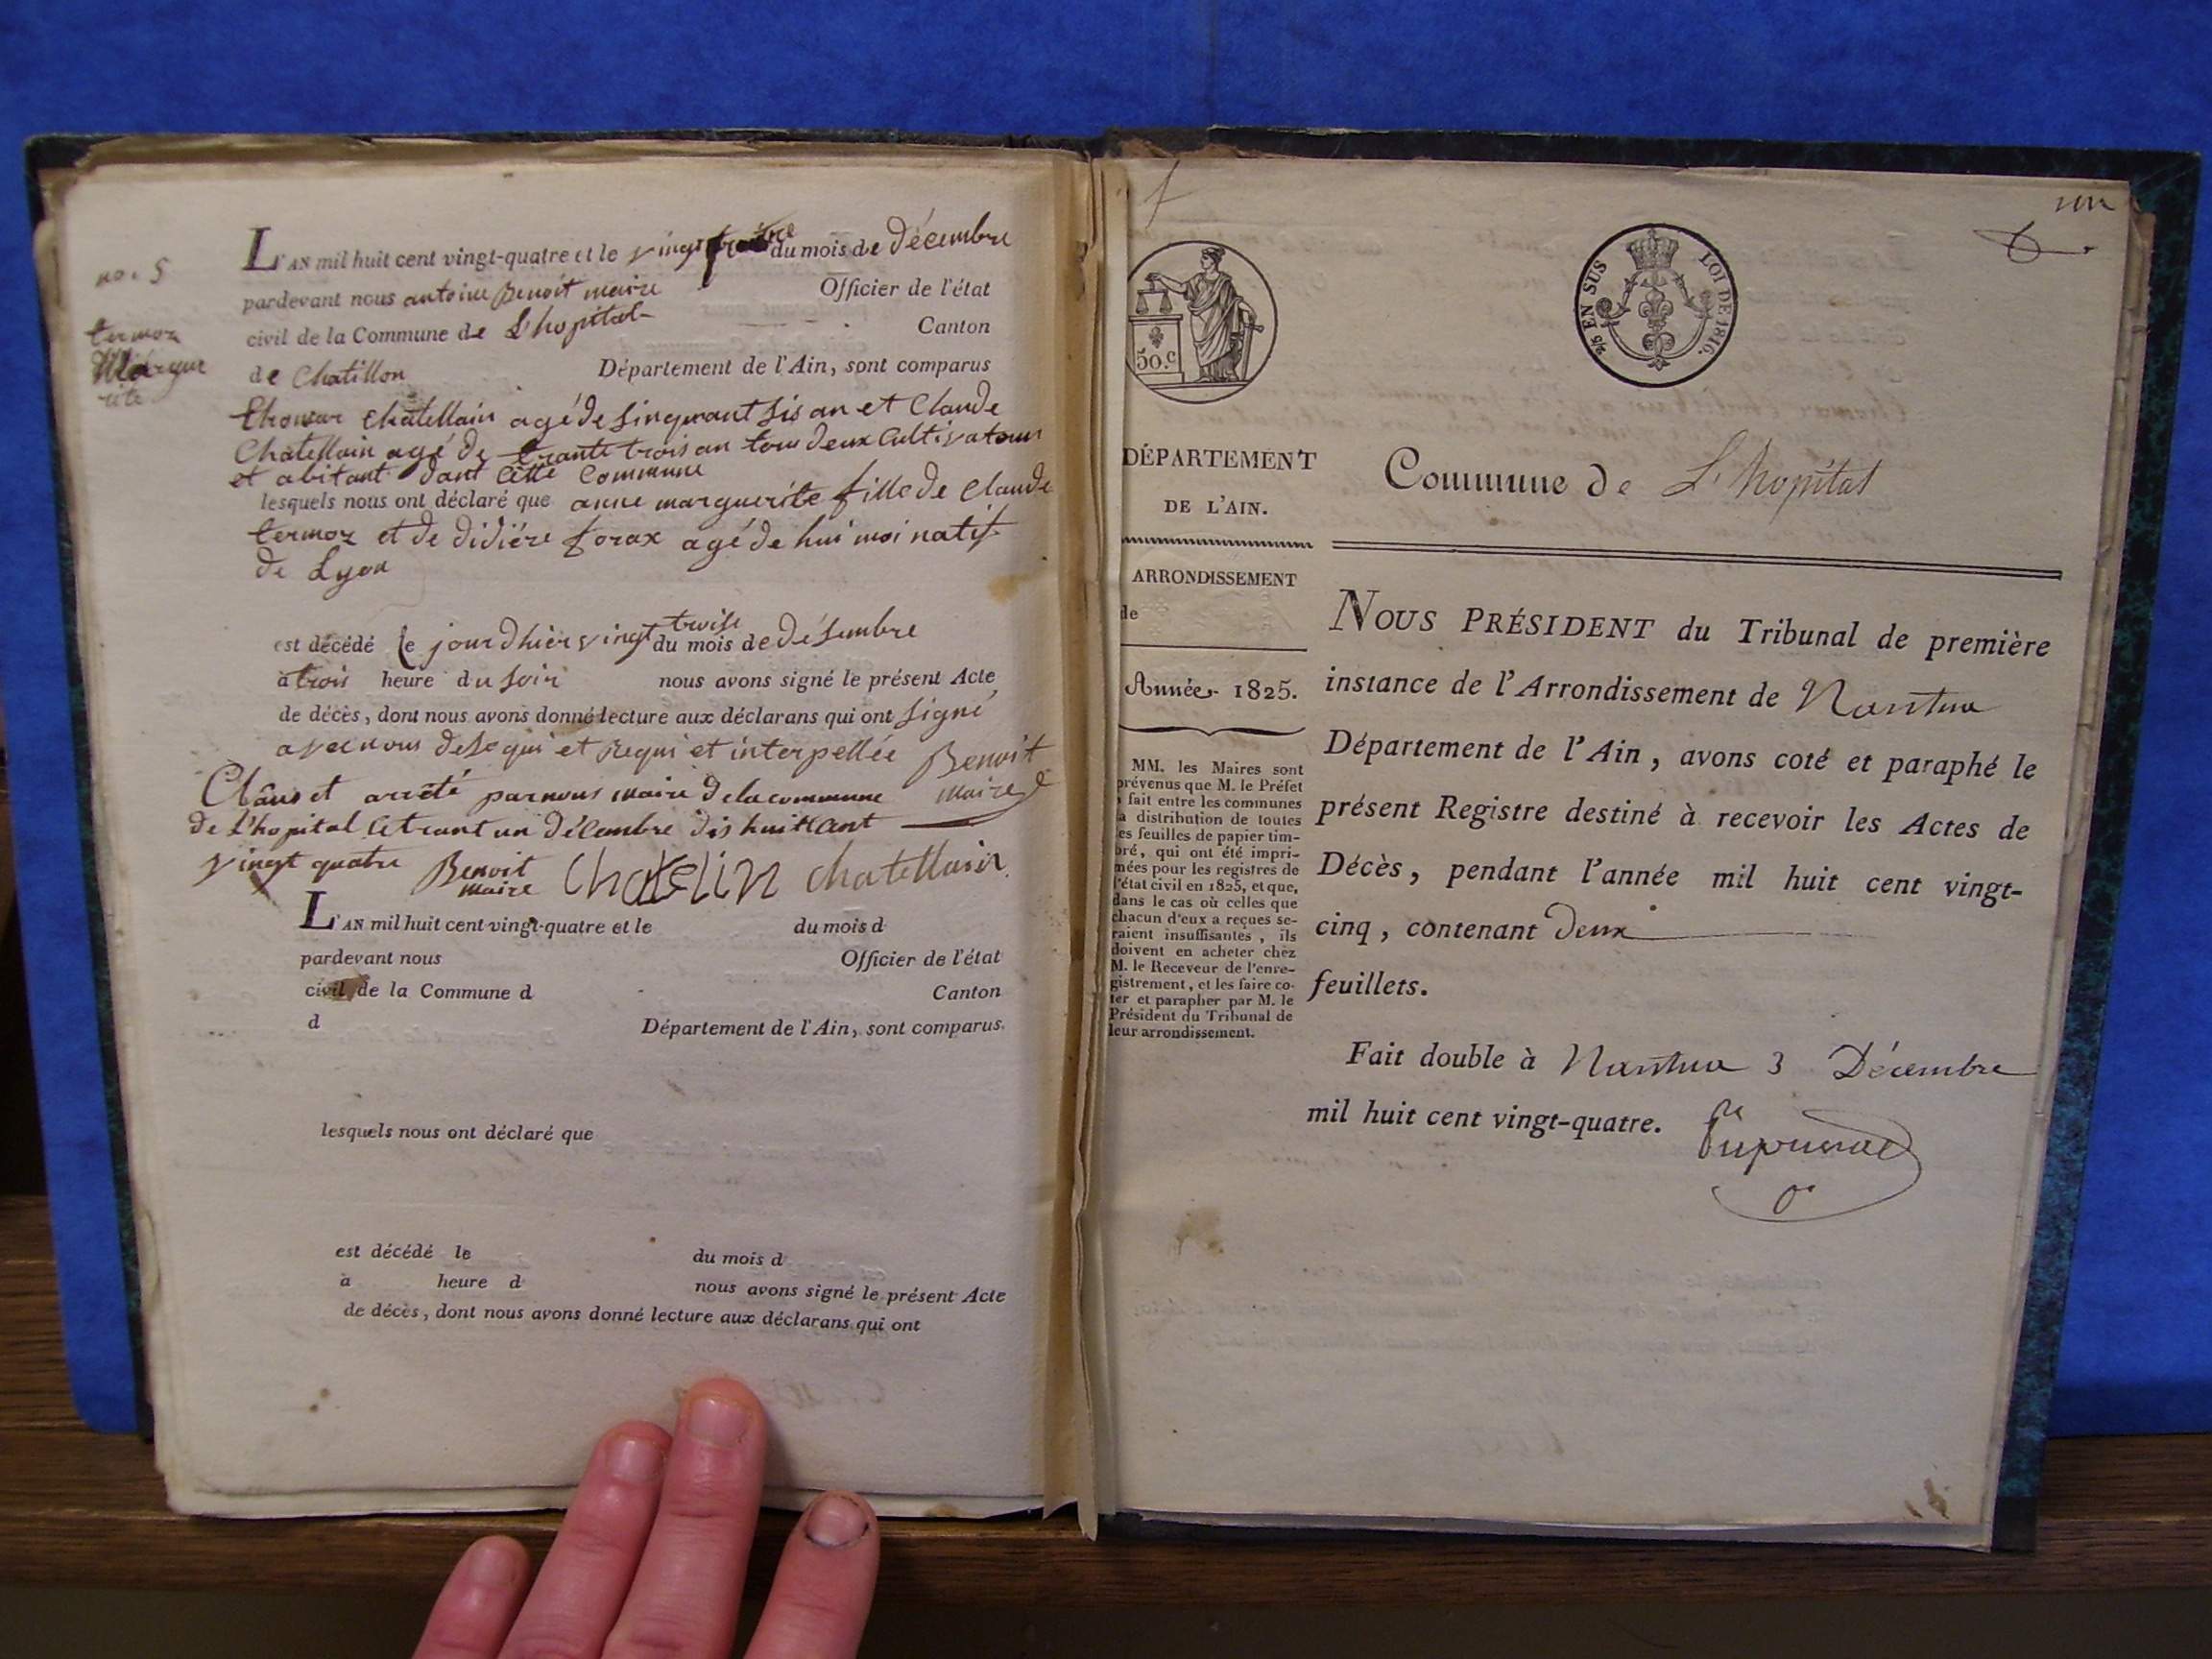 no. 5
termoz
Margue
rite
L'AN mil huit cent vingt-quatre et le vingt du mois de décembre
pardevant nous antoine Benoit maire Officier de l'état
civil de la Commune de L'hopital Canton
de Chatillon Département de l'Ain, sont comparus
thomas chatellain agé de sinquant sis an et Claude
Chatellain agé de trante trois an tous deux Cultivateurs
et abitant dant Cette Commune
lesquels nous ont déclaré que anne marguerite fille de Claude
termoz et de didiére forax agé de hui moi natif
de Lyon
est décédé le jour Dhier vingt troise du mois de désembre
à trois heure du soir nous avons signé le présent Acte
de décès, dont nous avons donné lecture aux déclarans qui ont signé
avec nous de se qui et requi et interpellée Benoit
maire
Claus et arrêté par nous maire de la commune
de L'hopital le trant un décembre dis huit Cent
vingt quatre Benoit
maire Chatelin chatellain
L'AN mil huit cent vingt-quatre et le du mois d
pardevant nous Officier de l'état
civil de la Commune d Canton
d Département de l'Ain, sont comparus
lesquels nous ont déclaré que
est décédé le du mois d
à heure d nous avons signé le présent Acte
de décès, dont nous avons donné lecture aux déclarans qui ont
un
50.c
2/5 EN SUS
LOI DE 1816.
DÉPARTEMENT
DE L'AIN.
ARRONDISSEMENT
de
Année 1825.
MM. les Maires sont
prévenus que M. le Préfet
a fait entre les communes
la distribution de toutes
les feuilles de papier tim-
bré, qui ont été impri-
mées pour les registres de
l'état civil en 1825, et que,
dans le cas où celles que
chacun d'eux a reçues se-
raient insuffisantes, ils
doivent en acheter chez
M. le Receveur de l'enre-
gistrement, et les faire co-
ter et parapher par M. le
Président du Tribunal de
leur arrondissement.
Commune de L'hopital
NOUS PRÉSIDENT du Tribunal de première
instance de l'Arrondissement de Nantua
Département de l'Ain, avons coté et paraphé le
présent Registre destiné à recevoir les Actes de
Décès, pendant l'année mil huit cent vingt-
cinq, contenant Deux
feuillets.
Fait double à Nantua 3 Décembre
mil huit cent vingt-quatre.